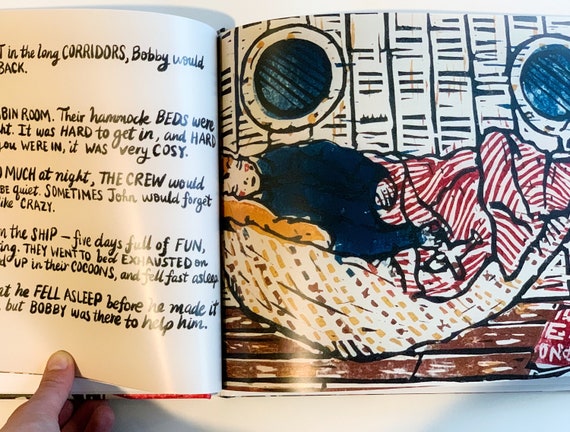 in the long CORRIDORS, Bobby would
BACK.
BIN ROOM. Their hammock BEDS were
ht. It was HARD to get in, and HARD
you WERE IN, it WAS very COSY.
MUCH at night, THE CREW would
BE QUIET. SOMETIMES John would forget
like CRAZY.
n the SHIP – five days full of FUN,
ing. THEY WENT to bed EXHAUSTED on
d UP in their COCOONS, and fell fast asleep
at he FELL ASLEEP before he made it
, but BOBBY was there to help him.
E